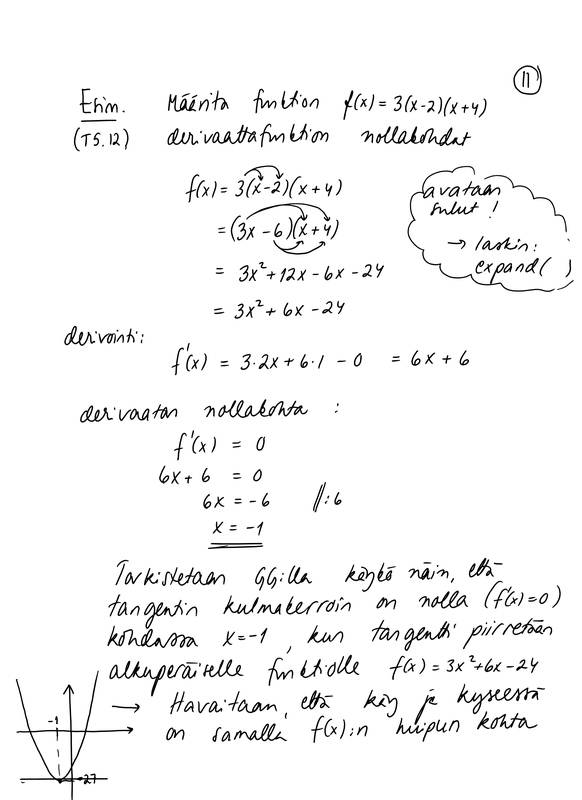 11
Esim. Määritä funktion f(x) = 3(x-2)(x+4)
(T5.12) derivaattafunktion nollakohdat
f(x) = 3(x-2)(x+4)
= (3x-6)(x+4)
= 3x²+12x-6x-24
= 3x²+6x-24
avataan
sulut!
→ laskin:
expand( )
derivointi:
f'(x) = 3·2x+6·1-0 = 6x+6
derivaatan nollakohta :
f'(x) = 0
6x+6 = 0
6x = -6 //:6
x = -1
Tarkistetaan GG:lla käykö näin, että
tangentin kulmakerroin on nolla (f'(x)=0)
kohdassa x=-1, kun tangentti piirretään
alkuperäiselle funktiolle f(x) = 3x²+6x-24
→ Havaitaan, että käy ja kyseessä
on samalla f(x):n huipun kohta
-1
-27